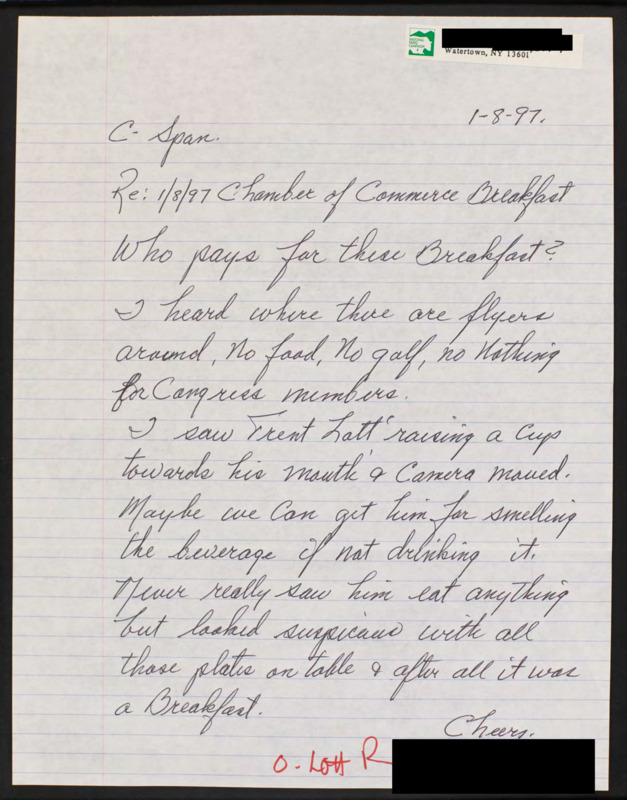 Watertown, NY 13601
1-8-97.
C-Span.
Re: 1/8/97 Chamber of Commerce Breakfast
Who pays for these Breakfast?
I heard where there are flyers
around, No food, No golf, no Nothing
for Congress members.
I saw Trent Lott raising a cup
towards his mouth & Camera moved.
Maybe we can get him for smelling
the beverage if not drinking it.
Never really saw him eat anything
but looked suspicious with all
those plates on table & after all it was
a Breakfast.
Cheers.
O-Lott R